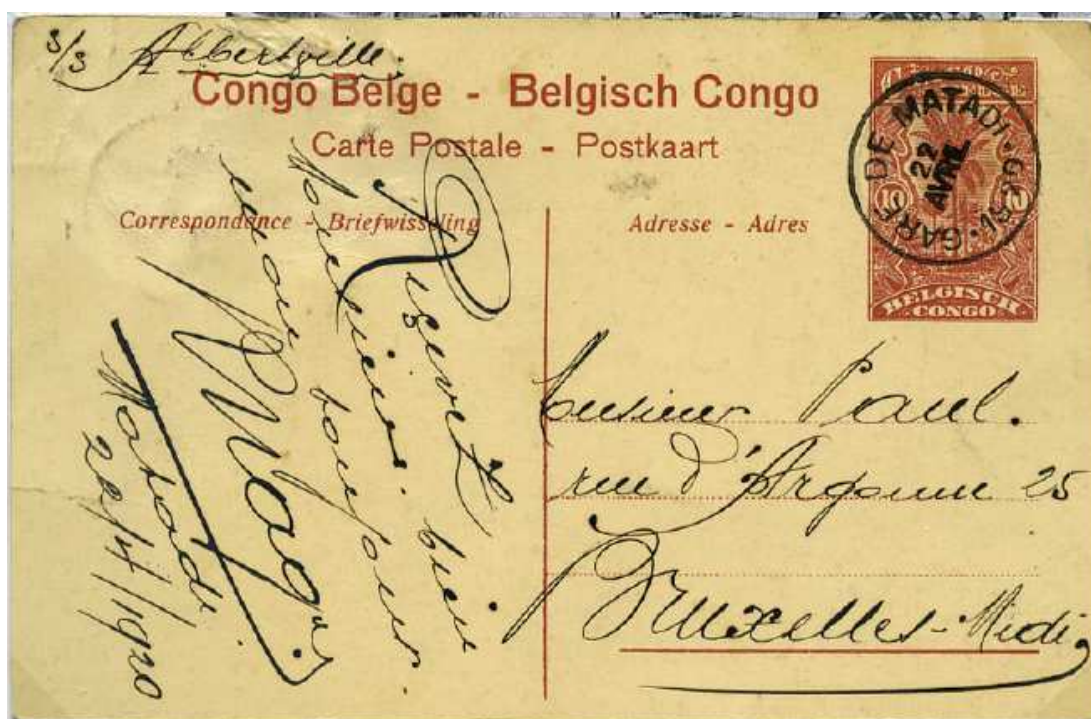 S/S Albertville.
Congo Belge - Belgisch Congo
Carte Postale - Postkaart
Correspondance - Briefwisseling
Adresse - Adres
GARE DE MATADI · 1920 ·
22
AVRIL
10
BELGISCH
CONGO
Recevez bien
Monsieur
mon bonjour.
Matadi
22/4/1920
Monsieur Paul.
rue d'Argonne 25
Bruxelles-Midi